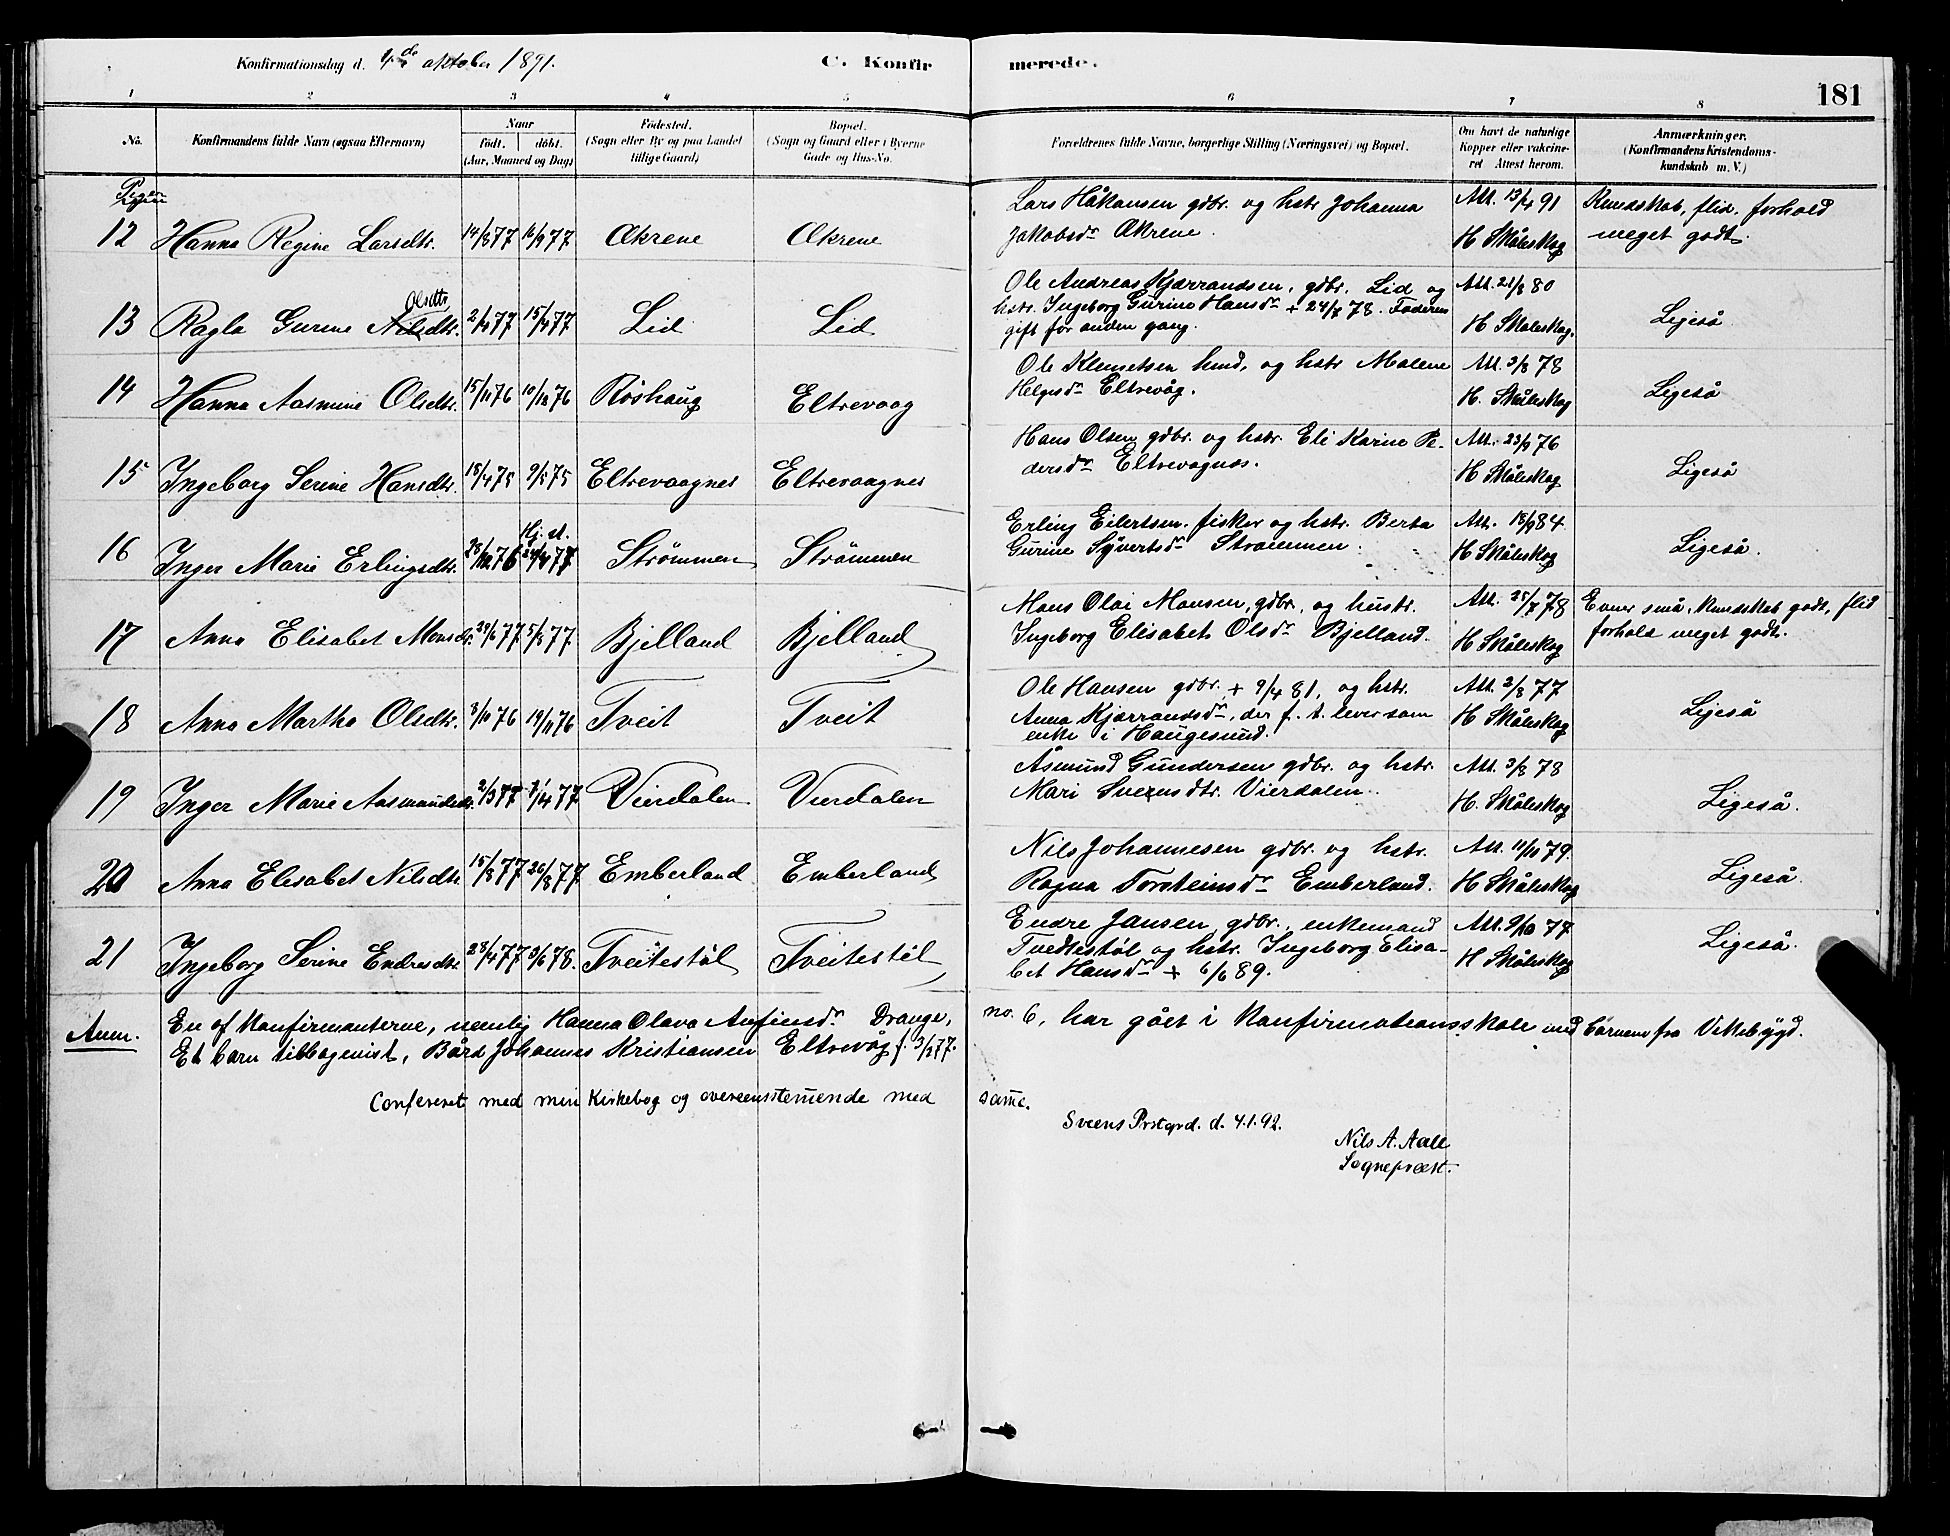 Konfirmationsdag d. 4de oktober 1891. C. Konfirmerede. 181
1 2 3 4 5 6 7 8
No. Konfirmandens fulde Navn (ogsaa Efternavn) Naar födt. döbt. (Aar, Maaned og Dag) Födested. (Sogn eller By og paa Landet tillige Gaard) Bopæl. (Sogn og Gaard eller i Byerne Gade og Hus-No. Forældrenes fulde Navne, borgerlige Stilling (Næringsvei) og Bopæl. Om havt de naturlige Kopper eller vakcineret Attest herom. Anmærkninger. (Konfirmandens Kristendomskundskab m. V.)
Piger
12 Hanna Regine Larsdtr. 14/8 77 16/9 77 Økrene Økrene Lars Håkansen gdbr. og hstr Johanna Att. 13/4 91 Kundskab, flid, forhold
Jakobsdr Økrene. H Skåleskog meget godt.
13 Ragla Gurine Nilsdtr. Olsdtr 2/4 77 15/4 77 Lid Lid Ole Andreas Kjærrandsen, gdbr. Lid og Att. 21/8 80
hstr. Ingeborg Gurine Hansdr + 24/7 78. Faderen H Skåleskog. Ligeså
gift for anden gang.
14 Hanna Aasmine Olsdtr. 15/11 76 10/12 76 Röshaug Eltrevaag Ole Klemetsen hmd, og hstr Malene Att. 3/8 78
Helgesdr Eltrevåg. H. Skåleskog Ligeså
15 Ingeborg Serine Hansdtr. 18/4 75 9/5 75 Eltrevaagnes Eltrevaagnes Hans Olsen gdbr. og hstr. Eli Karine Pe- Att. 23/9 76
dersdr Eltrevågnes. H Skåleskog Ligeså
16 Inger Marie Erlingsdtr. 28/12 76 Hj. d. 24/4 77 Strömmen Strömmen Erling Eilertsen. fisker og hstr. Berta Att. 18/9 84.
Gurine Syvertsdr Strømmen. H Skåleskog Ligeså.
17 Anna Elisabet Monsdr. 29/6 77 5/8 77 Bjelland Bjelland Mons Olai Monsen, gdbr., og hustr. Att. 25/7 78 Evner små, kundskab godt, flid
Ingeborg Elisabet Olsdr Bjelland. H Skåleskog forhold meget godt.
18 Anna Martha Olsdtr. 8/10 76 19/11 76 Tveit Tveit Ole Hansen gdbr. + 9/4 81, og hstr. Att. 3/8 77
Anna Kjærrandsdr, der f. t. lever som H Skåleskog Ligeså
enke i Haugesund.
19 Inger Marie Aasmundsdr. 2/3 77 8/4 77 Vierdalen Vierdalen Åsmund Gundersen gdbr. og hstr. Att. 3/8 78
Mari Sveensdtr. Vierdalen. H. Skåleskog Ligeså.
20 Anna Elisabet Nilsdtr. 15/8 77 26/8 77. Emberland Emberland Nils Johannesen gdbr. og hstr. Att. 11/10 79.
Ragna Torsteinsdr Emberland. H Skåleskog Ligeså.
21 Ingeborg Serine Endresdtr. 28/4 77 3/6 78. Tveitestöl Tveitestöl Endre Jansen, gdbr., enkemand Att. 9/10 77
Tvedtestöl og hstr. Ingeborg Elisa- H Skåleskog Ligeså.
bet Hansdr + 6/6 89.
Anm. En af konfirmanterne, nemlig Hanna Olava Anfinsdr Drange, no. 6, har gået i konfirmationsskole med börnene fra Vikebygd.
Et barn tilbagevist, Bård Johannes Kristiansen Eltrevåg f. 3/2 77.
Confereret med min Kirkebog og overeensstemende med same.
Sveens Prstgrd. d. 4.1.92.
Nils A. Aall
Sognepræst.